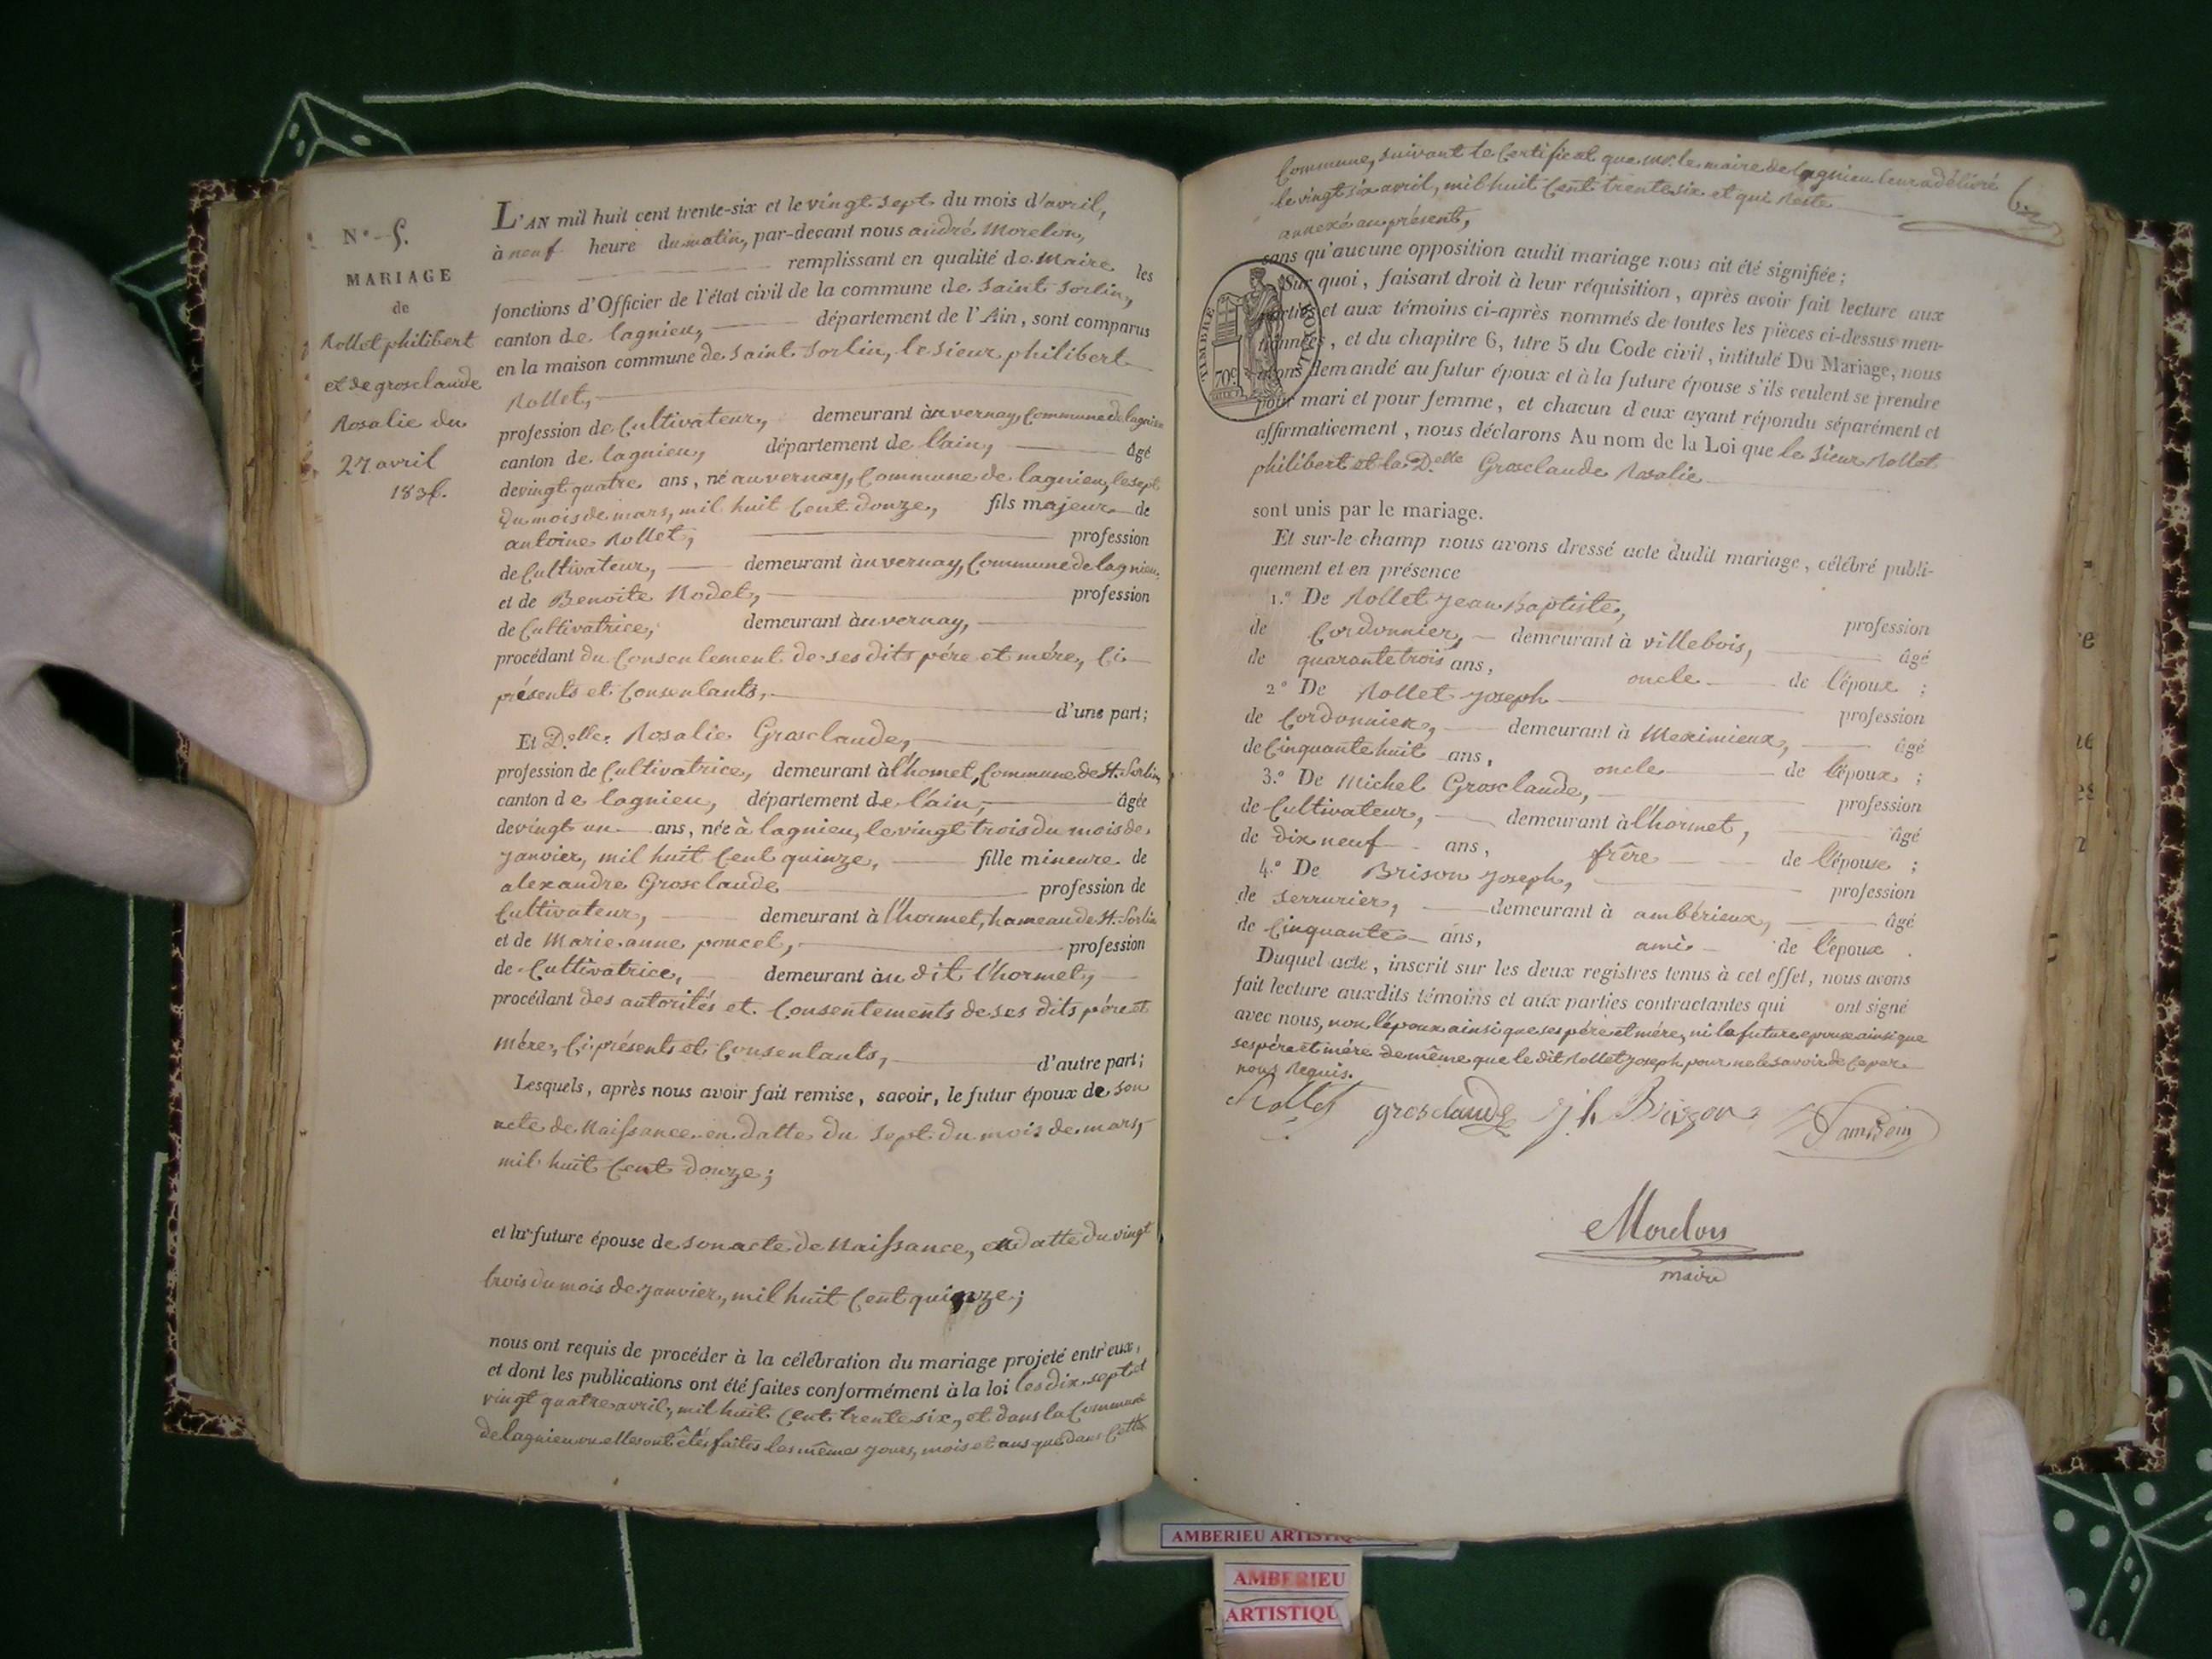 N.o 5.
MARIAGE
de
Rollet philibert
et de grosclaude
Rosalie du
27 avril
1836.
L'AN mil huit cent trente-six et le vingt sept du mois d'avril,
à neuf heure du matin, par-devant nous andré Morelon,
remplissant en qualité de Maire les
fonctions d'Officier de l'état civil de la commune de Saint Sorlin,
canton de lagnieu, département de l'Ain, sont comparus
en la maison commune de Saint Sorlin, le sieur philibert
Rollet,
profession de Cultivateur, demeurant à uvernay, Commune de lagnieu
canton de lagnieu, département de l'ain, âgé
de vingt quatre ans, né au vernay, Commune de lagnieu, le sept
du mois de mars, mil huit Cent douze, fils majeur de
antoine Rollet, profession
de Cultivateur, demeurant à uvernay, Commune de lagnieu,
et de Benoite Rodet, profession
de Cultivatrice, demeurant à uvernay,
procédant du Consentement de ses dits père et mére, Ci
présents et Consentants, d'une part;
Et D.elle Rosalie Grosclaude,
profession de Cultivatrice, demeurant à l'hormet, Commune de St. Sorlin,
canton de lagnieu, département de l'ain, âgée
de vingt un ans, née à lagnieu, le vingt trois du mois de
janvier, mil huit Cent quinze, fille mineure de
alexandre Grosclaude profession de
Cultivateur, demeurant à l'hormet, hameau de St. Sorlin
et de Marie anne poncet, profession
de Cultivatrice, demeurant à u dit l'hormet,
procédant des autorités et Consentements de ses dits père et
mére, Ci présents et Consentants, d'autre part;
Lesquels, après nous avoir fait remise, savoir, le futur époux de son
acte de Naissance en datte du sept du mois de mars,
mil huit Cent douze;
et la future épouse de son acte de Naissance, en datte du vingt
trois du mois de janvier, mil huit Cent quinze;
nous ont requis de procéder à la célébration du mariage projeté entr'eux,
et dont les publications ont été faites conformément à la loi les dix sept et
vingt quatre avril, mil huit Cent trente six, et dans la Commune
de lagnieu ou elles ont êtés faites les mêmes jours, mois et ans que dans Cette
6
Commune, suivant le Certificat que Mr. le maire de lagnieu leur a délivré
le vingt six avril, mil huit Cent trente six et qui Reste
annexé au présent,
sans qu'aucune opposition audit mariage nous ait été signifiée;
Sur quoi, faisant droit à leur réquisition, après avoir fait lecture aux
parties et aux témoins ci-après nommés de toutes les pièces ci-dessus men-
tionnées, et du chapitre 6, titre 5 du Code civil, intitulé Du Mariage, nous
avons demandé au futur époux et à la future épouse s'ils veulent se prendre
pour mari et pour femme, et chacun d'eux ayant répondu séparément et
affirmativement, nous déclarons Au nom de la Loi que le Sieur Rollet
philibert et la D.elle Grosclaude Rosalie
TIMBRE ROYAL
70c
sont unis par le mariage.
Et sur-le-champ nous avons dressé acte dudit mariage, célébré publi-
quement et en présence
1.o De Rollet Jean Baptiste, profession
de Cordonnier, demeurant à villebois, âgé
de quarante trois ans, oncle de l'époux ;
2.o De Rollet Joseph profession
de Cordonnier, demeurant à Meximieux, âgé
de Cinquante huit ans, oncle de l'époux ;
3.o De Michel Grosclaude, profession
de Cultivateur, demeurant à l'hormet, âgé
de dix neuf ans, frère de l'épouse ;
4.o De Brison Joseph, profession
de serrurier, demeurant à ambérieux, âgé
de Cinquante ans, ami de l'époux .
Duquel acte, inscrit sur les deux registres tenus à cet effet, nous avons
fait lecture auxdits témoins et aux parties contractantes qui ont signé
avec nous, non l'époux ainsi que ses père et mére, ni la future epouse ainsi que
ses père et mére de même que le dit Rollet Joseph pour ne le savoir de Ce par
nous Requis.
Rollet grosclaude jh Brizon
Morelon
maire
AMBERIEU ARTISTIQU
AMBERIEU
ARTISTIQU